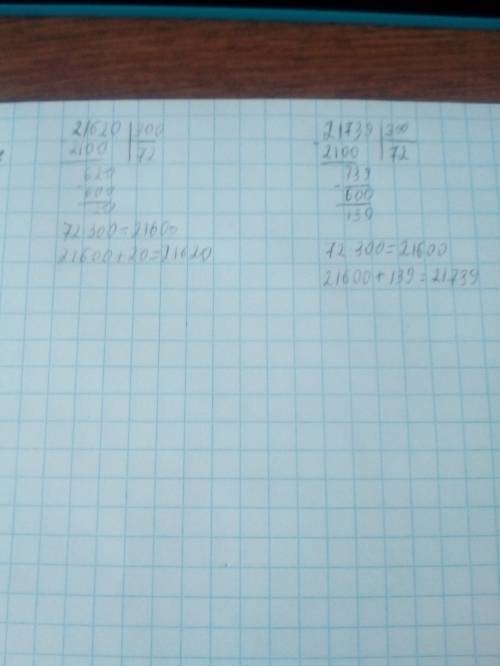 21620 300
2100 72
620
600
20
72 300=21600
21600+20=21620
- 21739 300
2100 72
739
- 600
139
72 300=21600
21600+139=21739